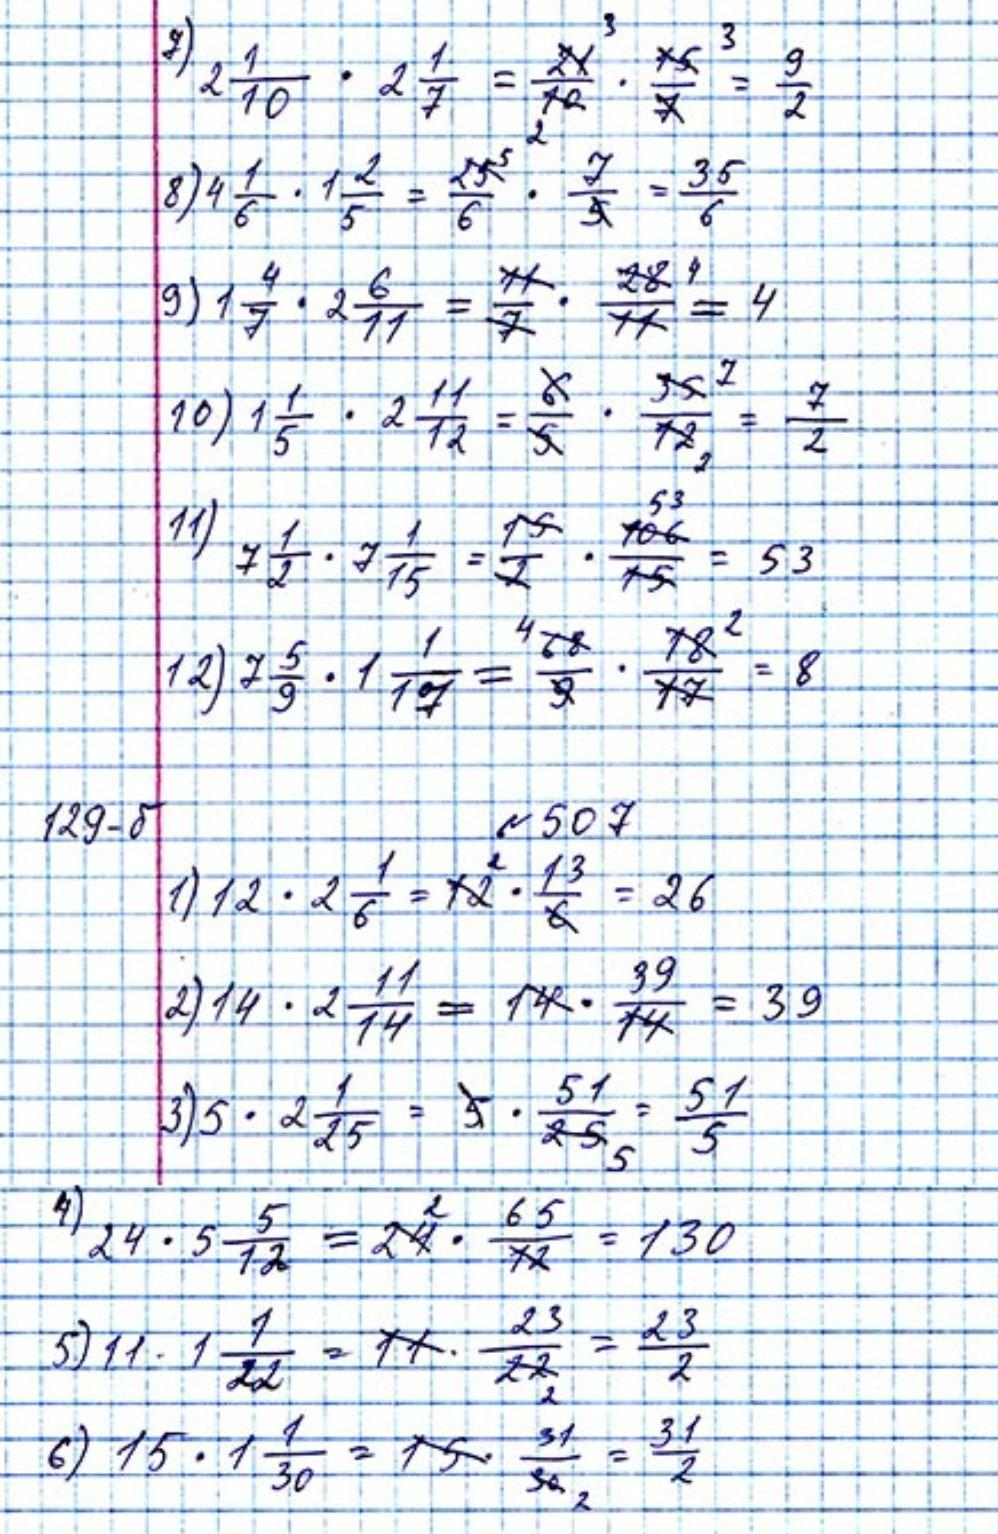 7) 2 1/10 · 2 1/7 = 21/10 · 15/7 = 9/2
8) 4 1/6 · 1 2/5 = 25/6 · 7/5 = 35/6
9) 1 4/7 · 2 6/11 = 11/7 · 28/11 = 4
10) 1 1/5 · 2 11/12 = 6/5 · 35/12 = 7/2
11) 7 1/2 · 7 1/15 = 15/2 · 106/15 = 53
12) 7 5/9 · 1 1/17 = 68/9 · 18/17 = 8
129-б №507
1) 12 · 2 1/6 = 12 · 13/6 = 26
2) 14 · 2 11/14 = 14 · 39/14 = 39
3) 5 · 2 1/25 = 5 · 51/25 = 51/5
4) 24 · 5 5/12 = 24 · 65/12 = 130
5) 11 · 1 1/22 = 11 · 23/22 = 23/2
6) 15 · 1 1/30 = 15 · 31/30 = 31/2